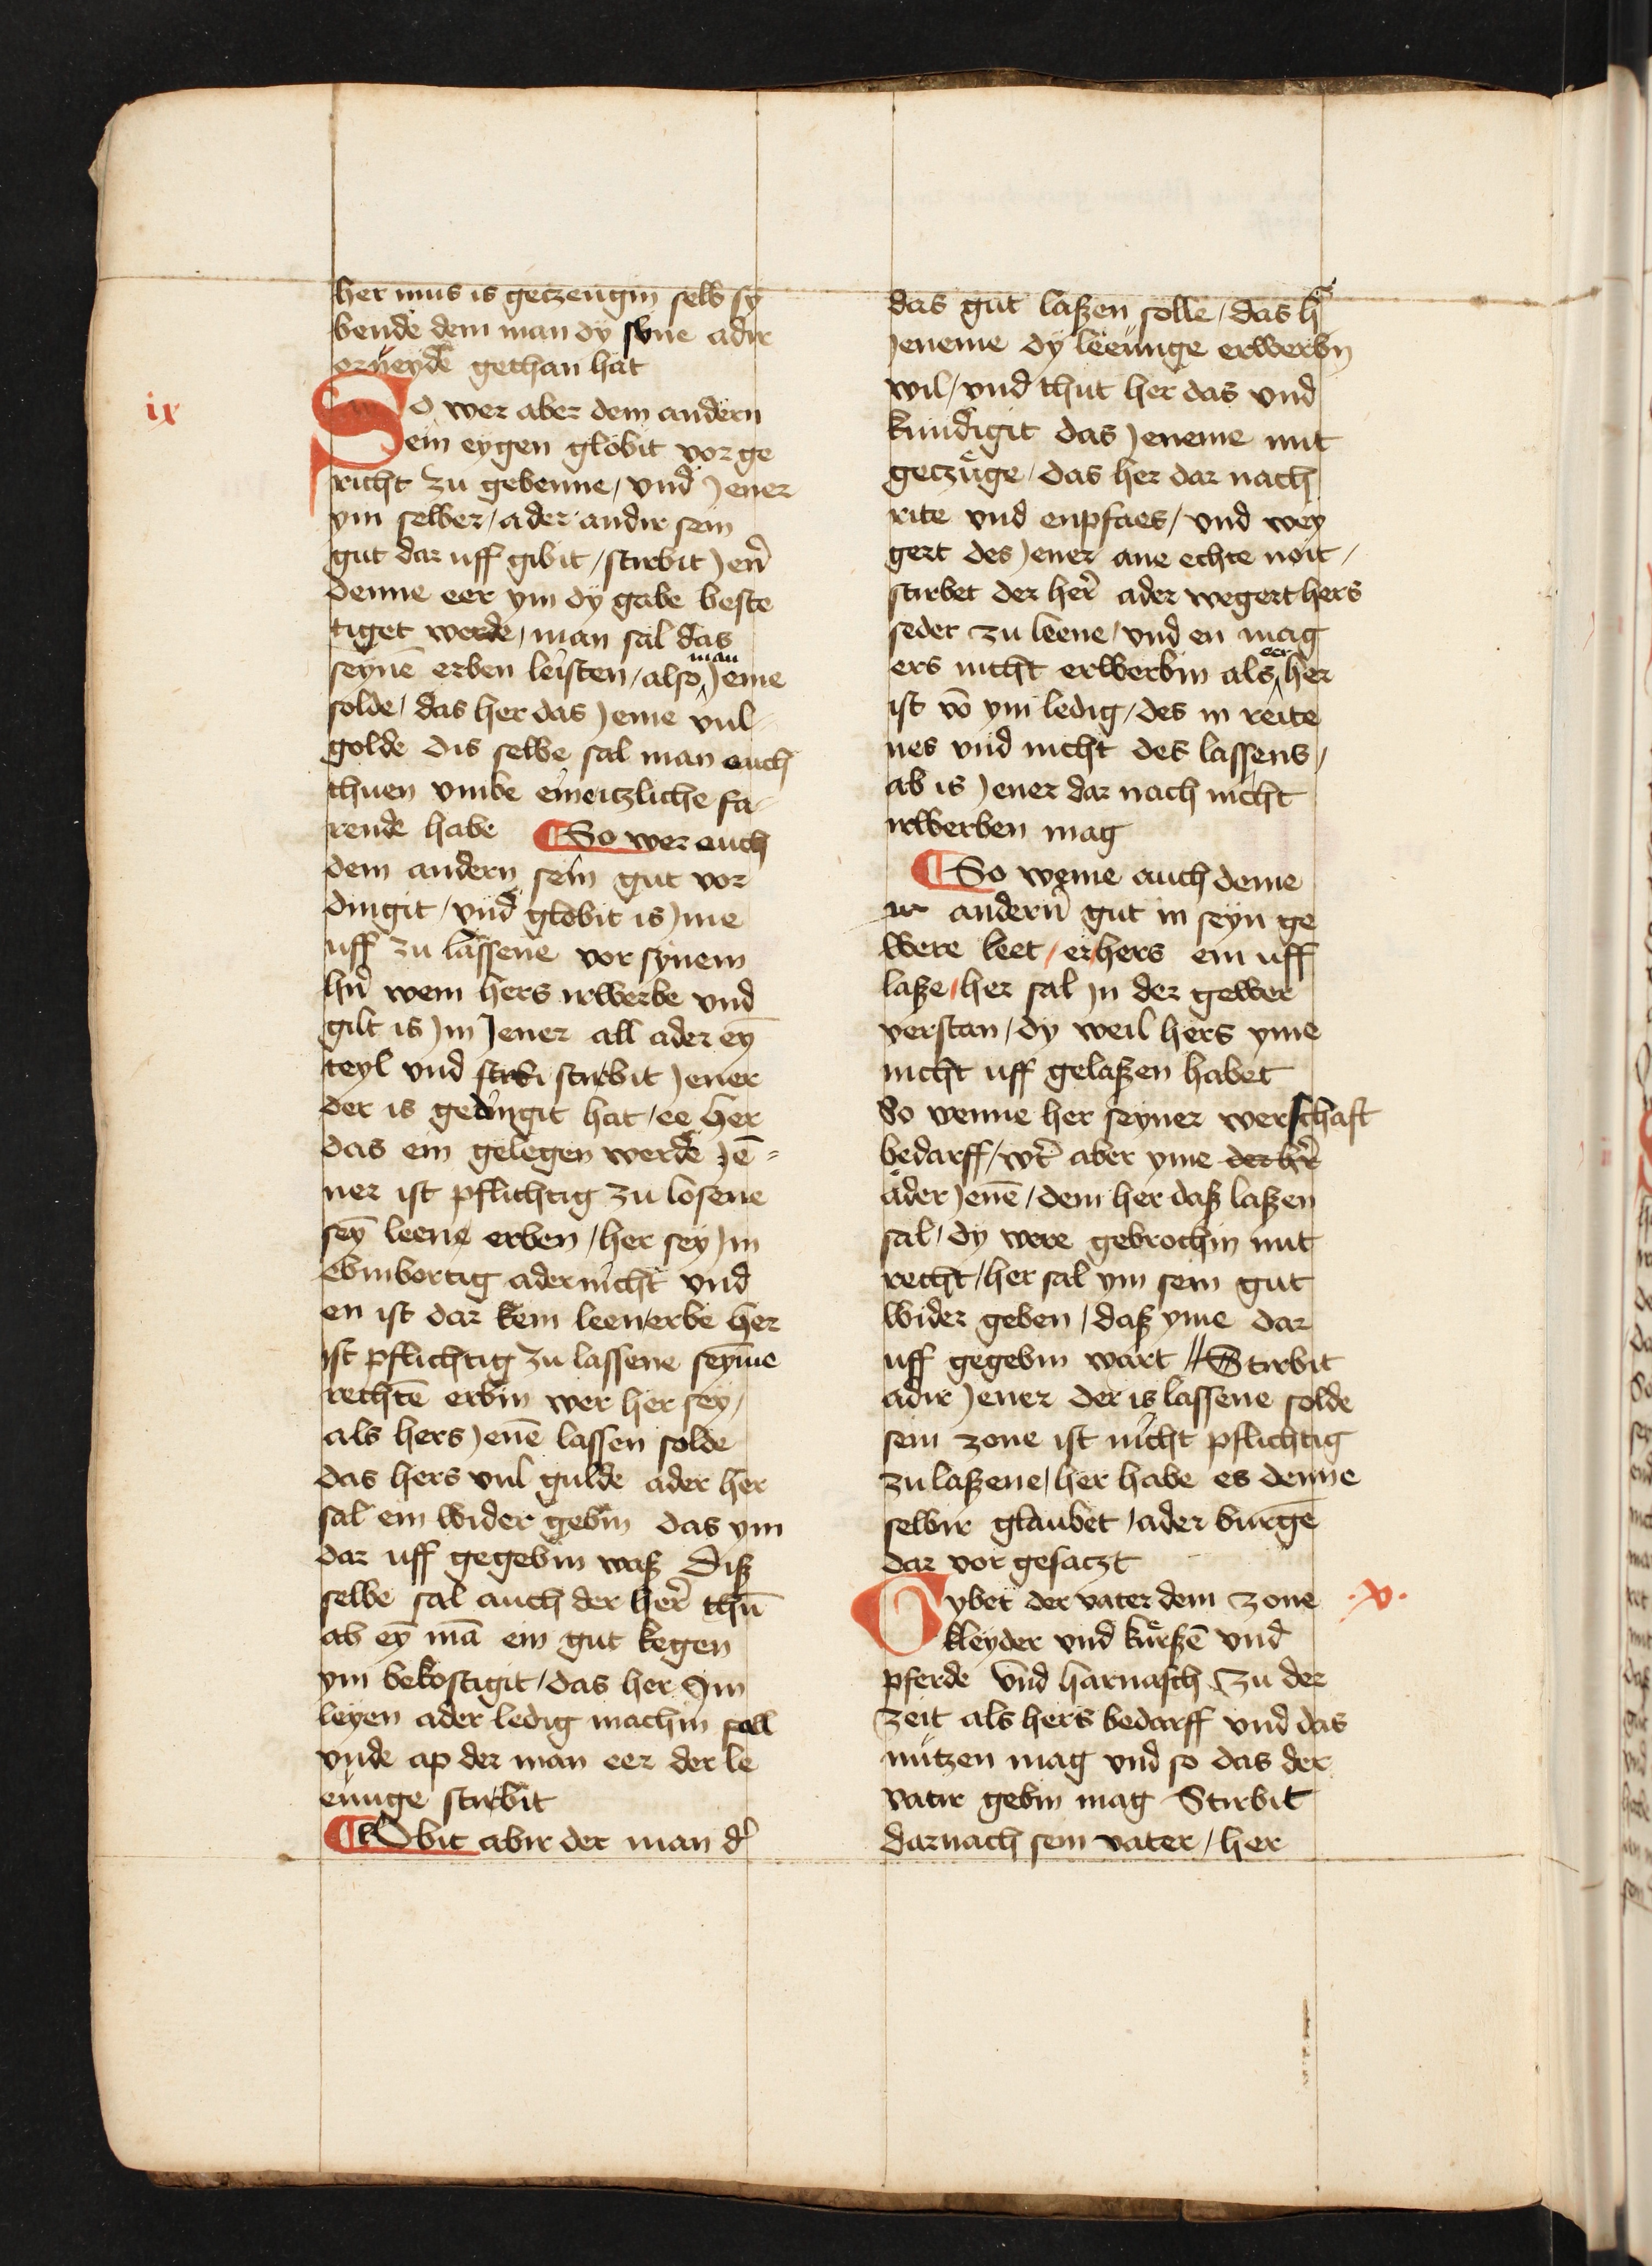 her mus is geczeugin selb sy
bende dem man dy sune adir
orueyde gethan hat
ix
So wer aber dem andern
sein eygen globit vor ge
richt zu gebenne / vnd Jener
ym selber / ader andir sein
gut dar uff gibit / stirbit Jen̄
denne eer ym dy gabe beste
tiget werde / man sal das
seynē erben leisten / also man Jeme
solde / das her das Jeme vul
golde dis selbe sal man auch
thuen vmbe eineitzliche fa
rende habe ¶ So wer auch
dem andern sein gut vor
dingit / vnd globit is Jme
uff zu lassene vor synem
hn̄ wem hers irwerbe vnd
gilt is Jm Jener all ader eȳ
teyl vnd stirbit Jener
der is gedingit hat / ee her
das ein gelegen werde Jē =
ner ist pflichtig zu losene
seȳ leene erben / her sey Jm
ebinbortig ader nicht vnd
en ist dar kein leenerbe her
ist pflichtig zu lassene seyme
rechtē erbin wer her sey /
als hers Jenē lassen solde
das hers vul gulde ader her
sal em wider gebin das ym
dar uff gegebin waß Diß
selbe sal auch der her̄ thū
ab eȳ mā ein gut kegen
ym bekostigit / das her Jm
leyen ader ledig machin sall
vnde ap der man eer der le
eunge stirbit
¶ Lobit abir der man d̄
das gut laßen solle / das h̄
Jeneme dy leeunge erwerbn
wil / vnd thut her das vnd
kundigit das Jeneme mit
geczuge / das her dar nach
rite vnd enpfaes / vnd wey
gert des Jener ane echte noit /
stirbet der her̄ ader wegert hers
seder zu leene / vnd en mag
ers nicht erwerbin als eer her
ist vō ym ledig / des in reite
nes vnd nicht des lassens /
ab is Jener dar nach nicht
irwerben mag
¶ So weme auch deme
andern̄ gut in seyn ge
were leet / er hers em uff
laße / her sal Jn der gewer
verstan / dy weil hers yme
nicht uff gelaßen habet
So wenne her seyner werschaft
bedarff / wt̄ aber yme der hr̄
ader Jenē / dem her daß laßen
sal / dy were gebrochin mit
recht / her sal ym sein gut
wider geben / daß yme dar
uff gegebin wart // Stirbit
adir Jener der is lassene solde
sein zone ist nicht pflichtig
zu laßene / her habe es denne
selbir glaubet / ader burgē
dar vor gesaczt
.x.
Gybet der vater dem zone
kleyder vnd kurßē vnd
pferde vnd harnasch zu der
zeit als hers bedarff vnd das
nutzen mag vnd so das der
vatir gebin mag Stirbit
darnach sein vater / her